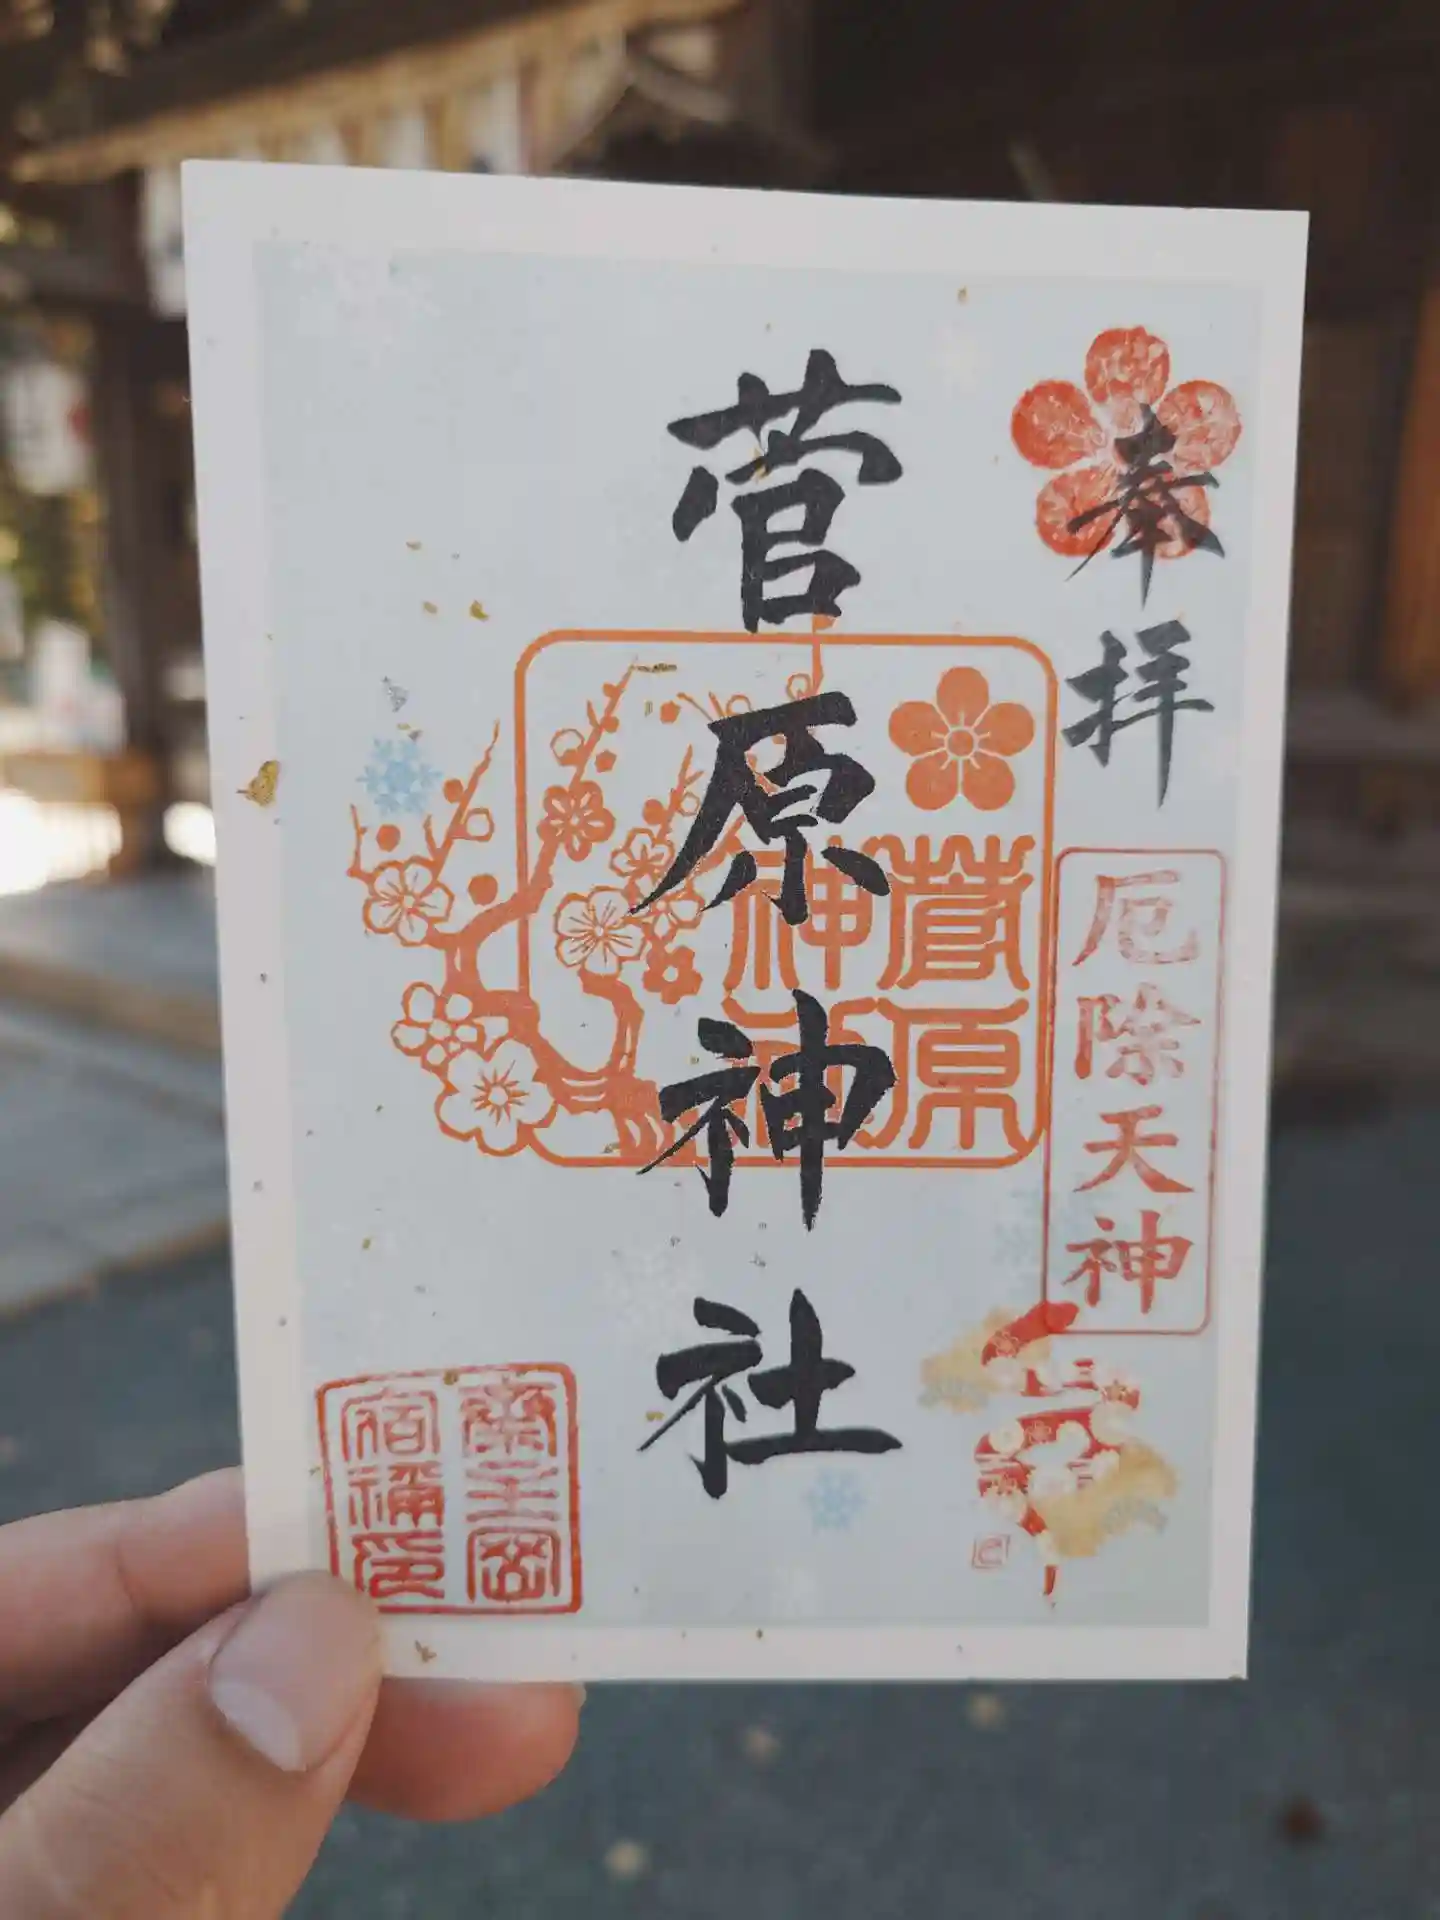 奉拝
厄除天神
菅原神社
菅原
神社